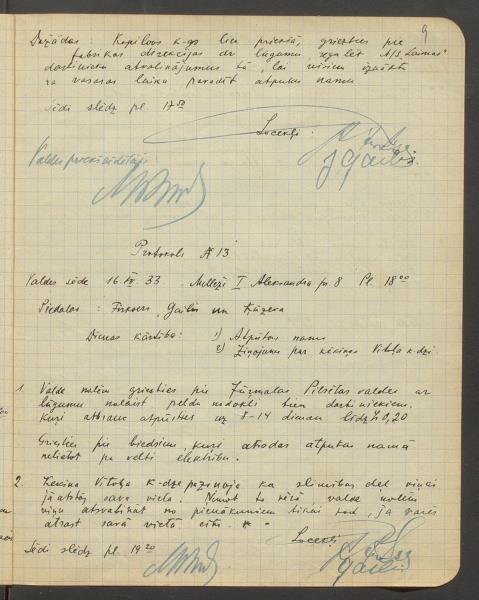 9
Dažādas Kopilovs k-gs liek priekšā, griezties pie
fabrikas direkcijas ar lūgumu regulēt A/S „Laimas"
darbinieku atvaļinājumus tā, lai visiem iznāktu
pa vasaras laiku pavadīt atpūtas namā.
Sēdi slēdz pl. 17 50
Locekļi:
Valdes priekšsēdētājs
Protokols № 13
Valdes sēde 16.IV. 33. Mellužī I Aleksandra pr. 8 Pl. 18 00
Piedalas: Gailis un
Dienas kārtība: 1) Atpūtas nams
2) Ziņojums par Vītola k-dzi
1. Valde nolēm griesties pie Jūrmalas Pilsētas valdes ar
lūgumu nolaist peldu nodokli tiem darbiniekiem.
kuŗi atbrauc atpūsties uz 8-14 dienām līdz Ls 0,20
Griesties pie biedriem, kuŗi atrodas atpūtas namā
nelietot pa velti elektrību.
2. Vītola k-dze paziņoja ka slimības dēļ viņai
jāatstāj sava vieta. Ņemot to vērā valde nolēm
viņu atsvabināt no pienākumiem tikai tad, ja varēs
atrast savā vietā citu.
Locekļi
Sēdi slēdz pl. 19 20
Gailis